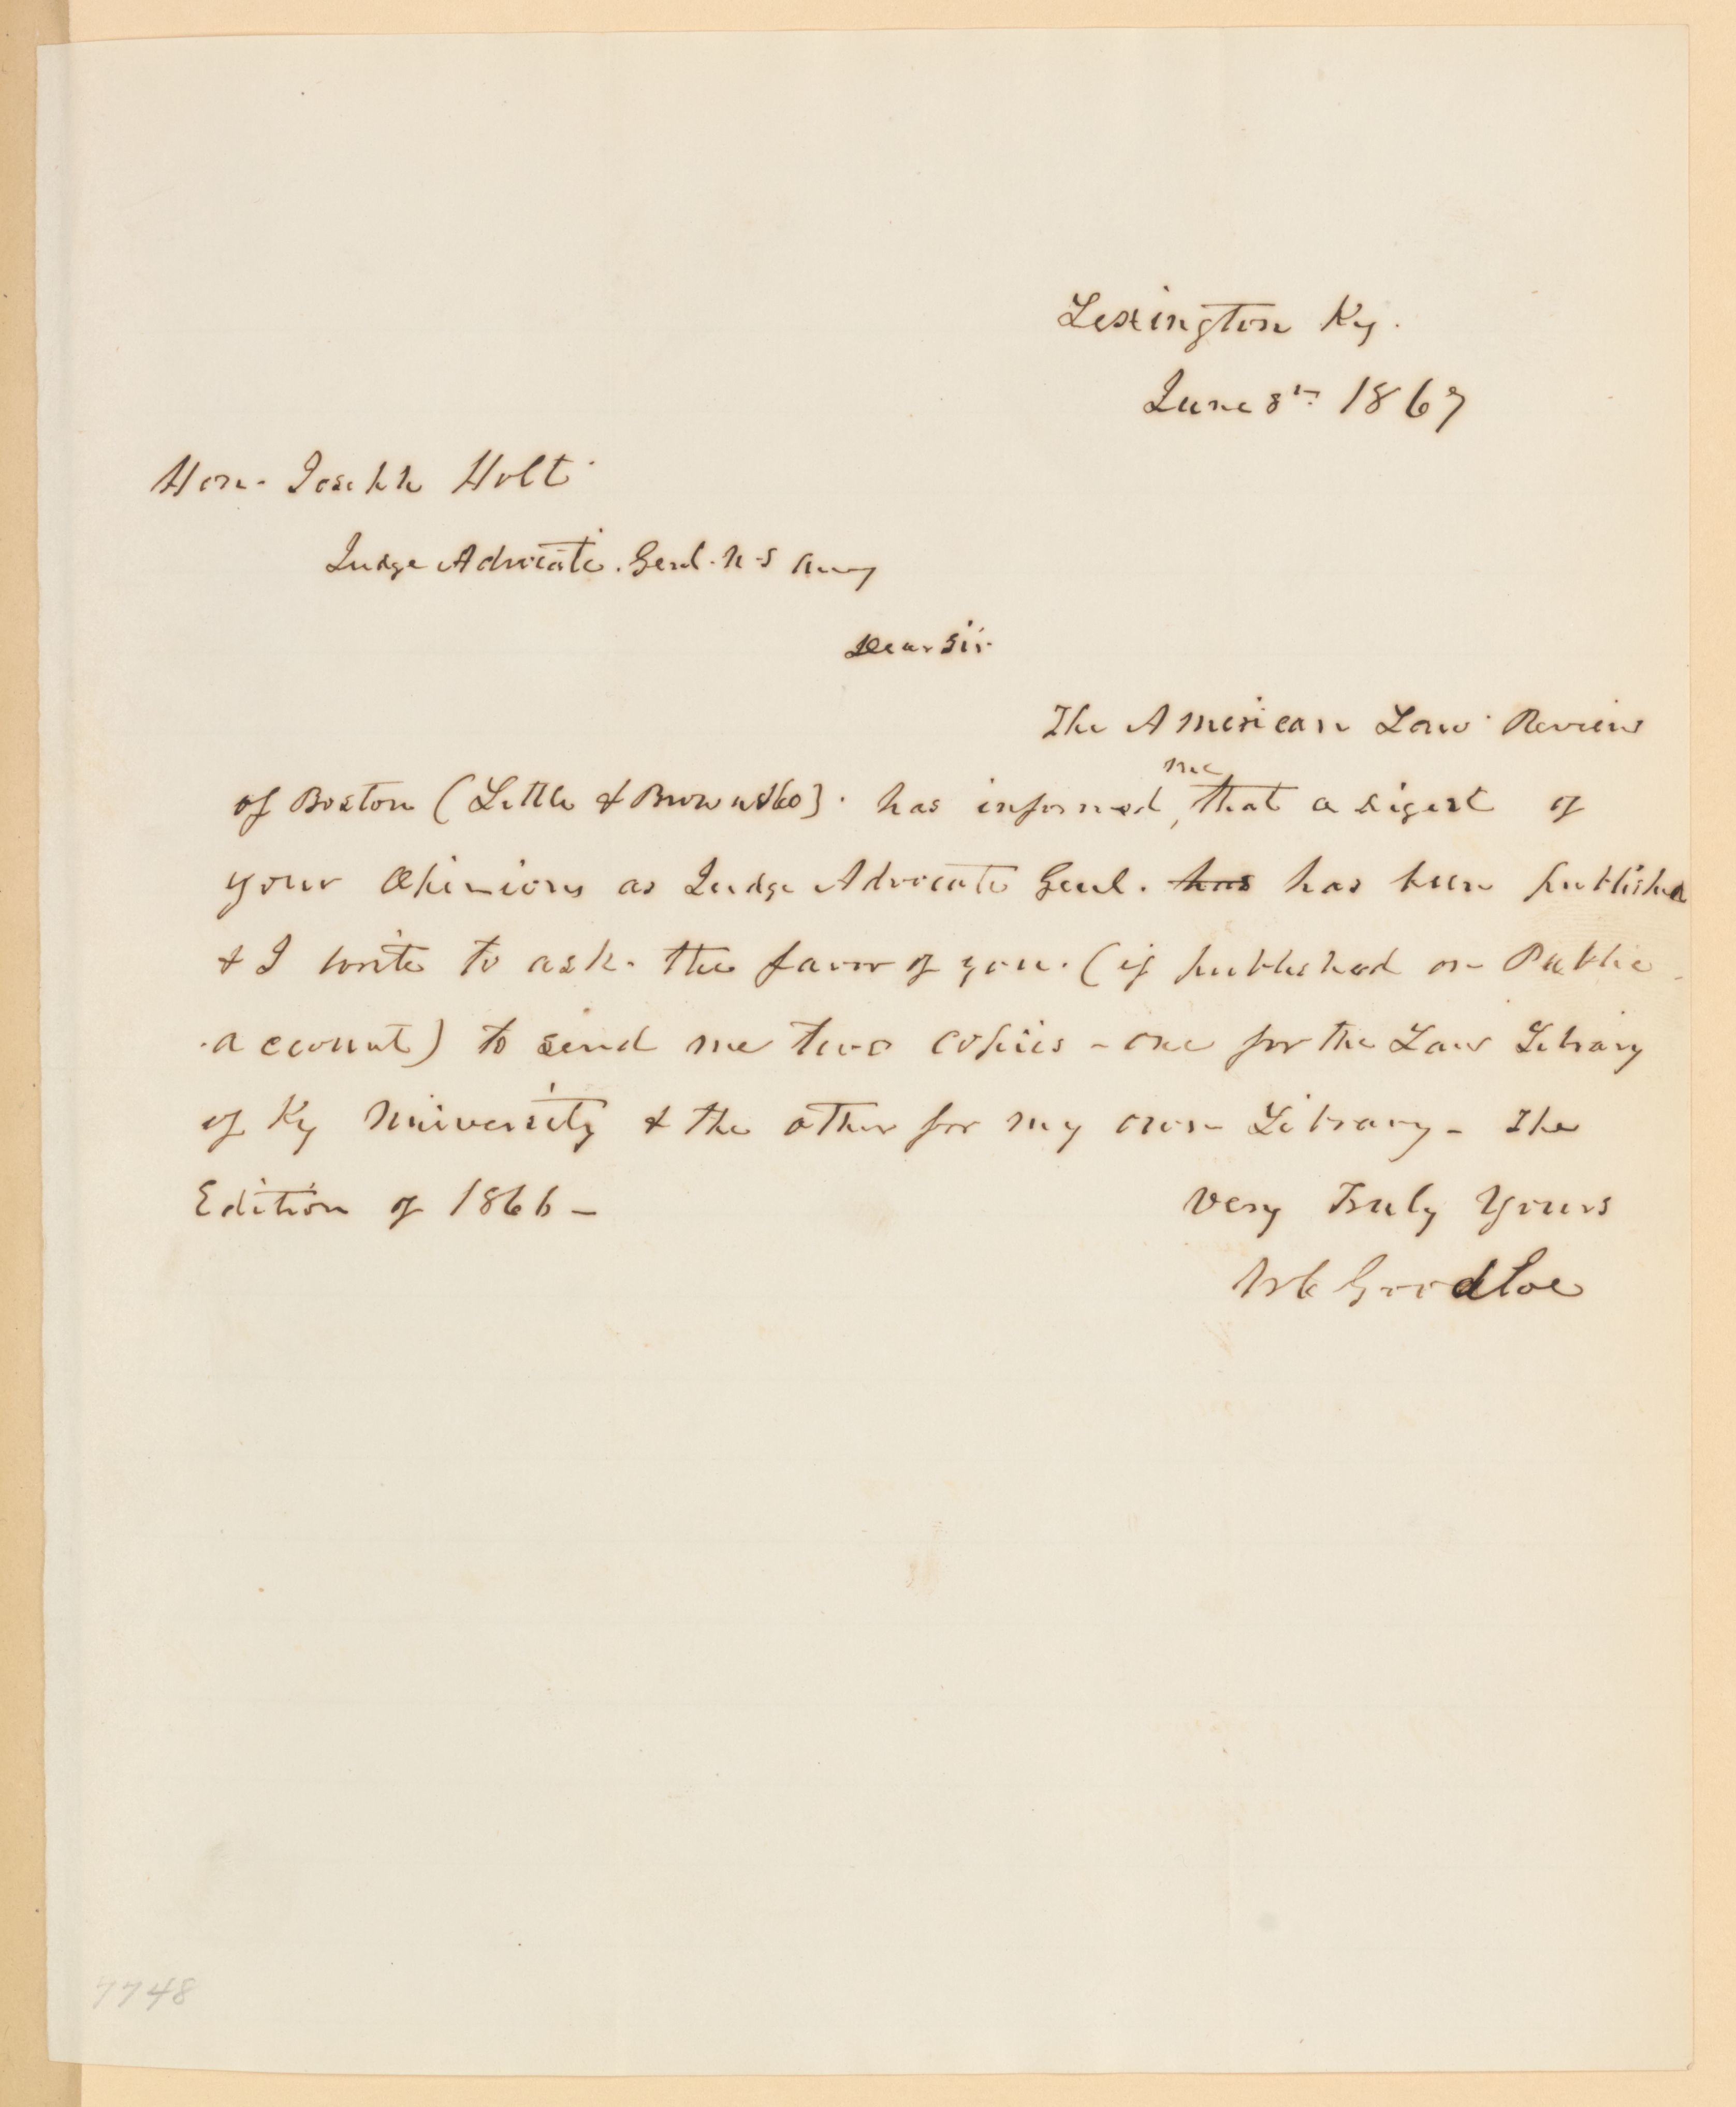 Lexington Ky.
June 8th 1867
Hon. Joseph Holt
Judge Advocate. Genl. U.S Army
Dear Sir
The American Law Review
me
of Boston (Little & Brown & Co). has informed, that a digest of
your Opinions as Judge Advocate Genl. has has been published
& I write to ask. the favor of you. (if published on Public
account) to send me two copies - one for the Law Library
of Ky University & the other for my own Library - The
Edition of 1866 -
Very Truly Yours
W C Goodloe
7748